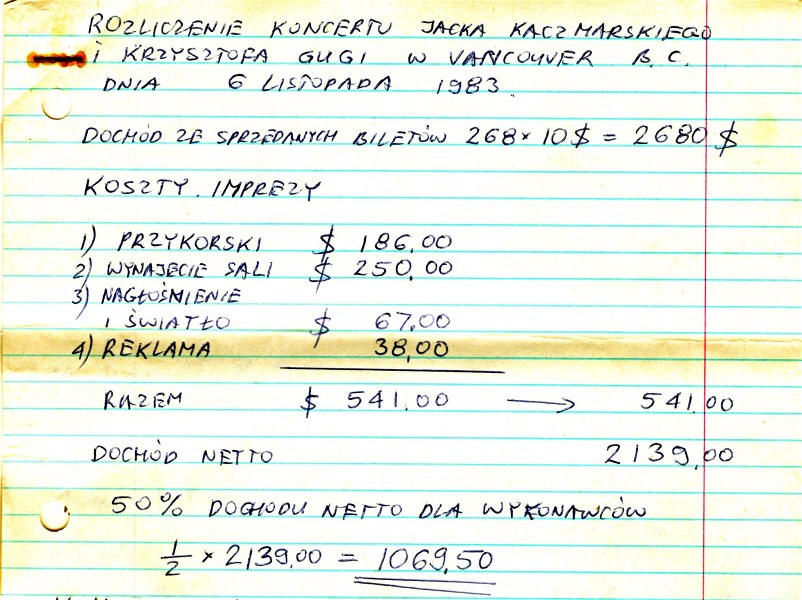 ROZLICZENIE KONCERTU JACKA KACZMARSKIEGO
I KRZYSZTOFA GUGI W VANCOUVER B.C.
DNIA 6 LISTOPADA 1983.
DOCHÓD ZE SPRZEDANYCH BILETÓW 268 × 10 $ = 2680 $
KOSZTY IMPREZY
1) PRZYKORSKI $ 186,00
2) WYNAJECIE SALI $ 250,00
3) NAGŁOŚNIENIE
I ŚWIATŁO $ 67.00
4) REKLAMA 38,00
RAZEM $ 541.00 → 541,00
DOCHÓD NETTO 2139,00
50% DOCHODU NETTO DLA WYKONAWCÓW
1/2 × 2139,00 = 1069,50